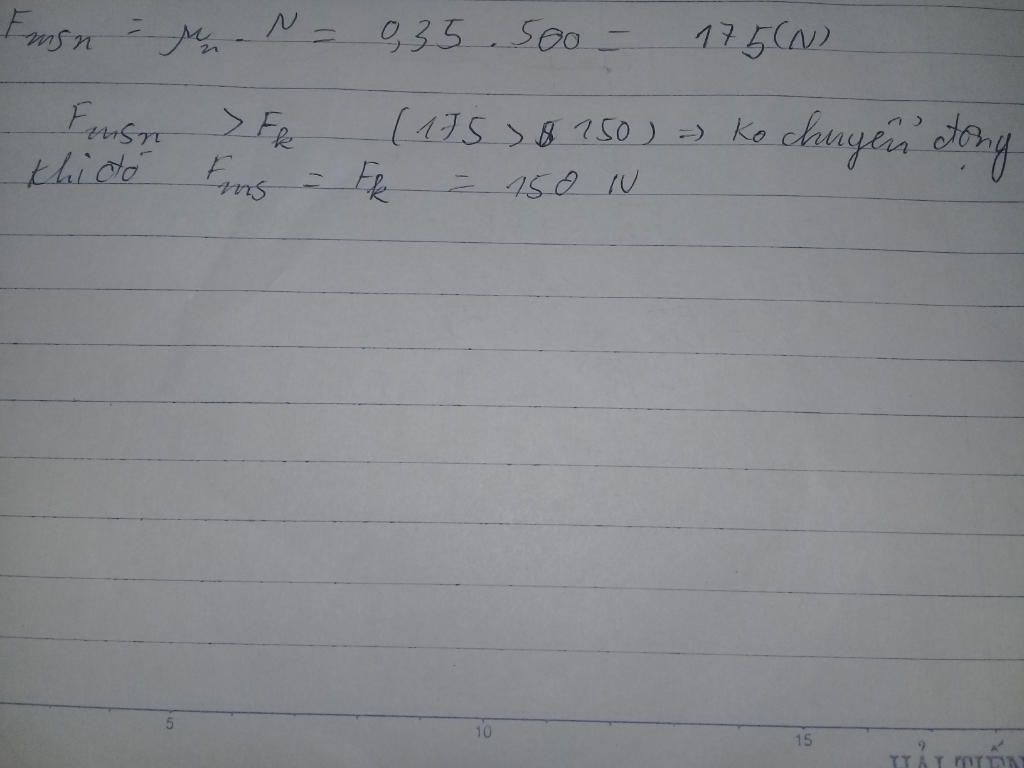 Fmsn = μn . N = 0,35 . 500 = 175(N)
Fmsn > Fk (175 > 150) => Ko chuyển động
khi đó Fms = Fk = 150 N
5 10 15
HẢI TIẾN